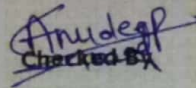 Anudeep
Checked By